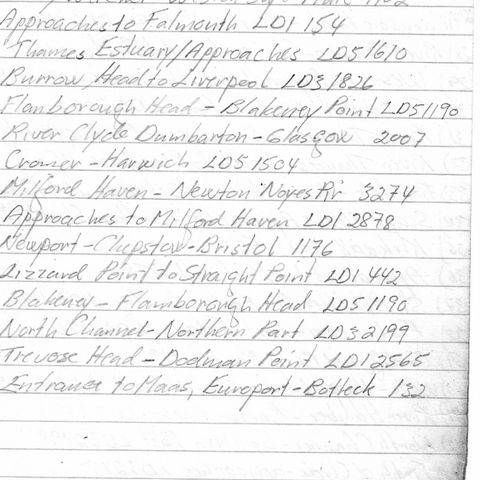 Approaches to Falmouth LD1 154
Thames Estuary/Approaches LD5 1610
Burrow Head to Liverpool LD3 1826
Flamborough Head - Blakeney Point LD5 1190
River Clyde Dumbarton - Glasgow 2007
Cromer - Harwich LD5 1504
Milford Haven - Newton Noyes Pr 3274
Approaches to Milford Haven LD1 2878
Newport - Chepstow - Bristol 1176
Lizzard Point to Straight Point LD1 442
Blakeney - Flamborough Head LD5 1190
North Channel - Northern Part LD3 2199
Trevose Head - Dodman Point LD1 2565
Entrance to Maas, Europort - Botleck 132